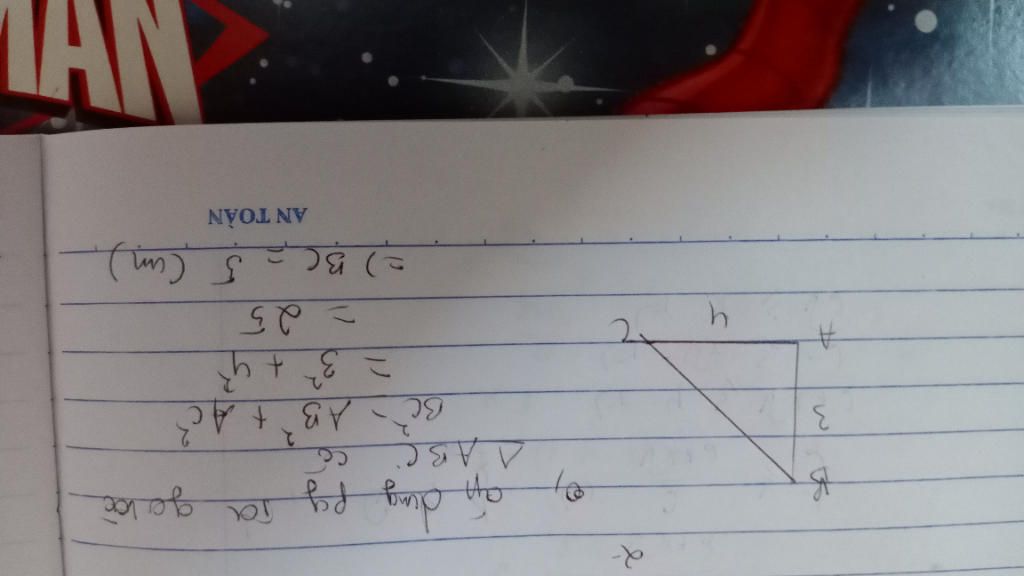 2-
a, áp dụng py ta go vào
Δ ABC có
BC² = AB² + AC²
= 3² + 4²
= 25
=) BC = 5 (cm)
B
3
A
4
C
AN TOÀN
MAN